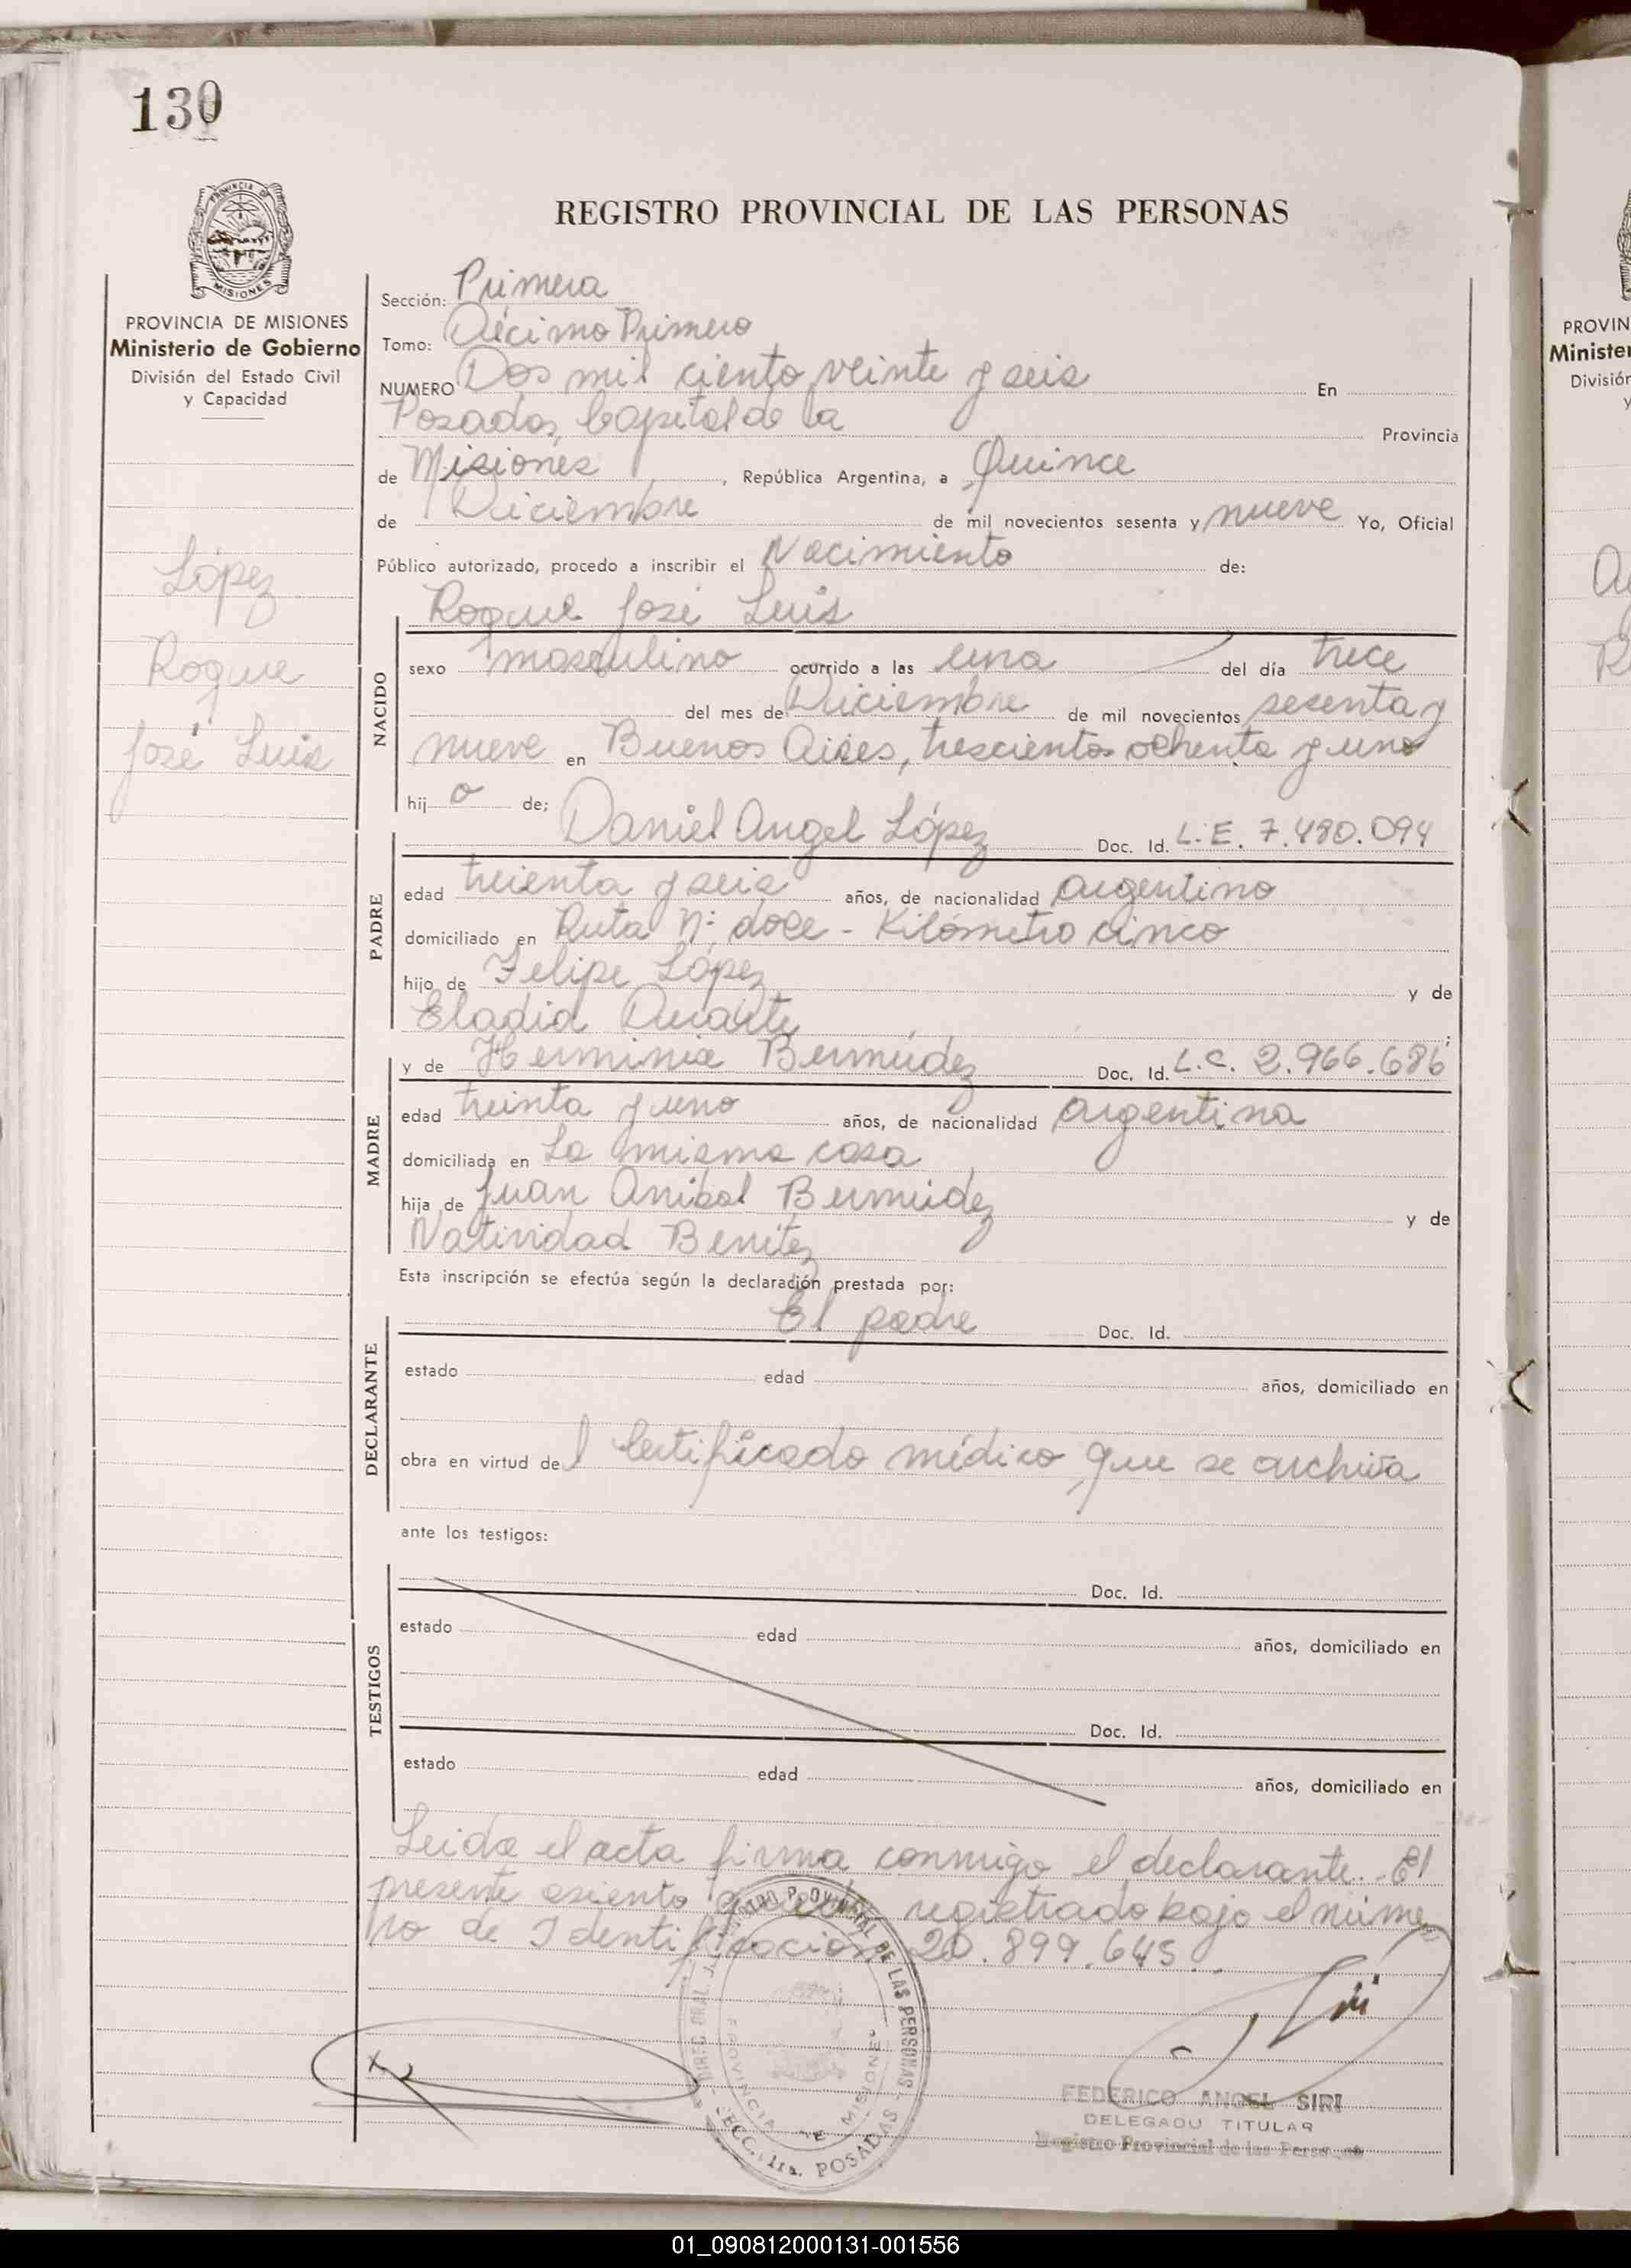 130
REGISTRO PROVINCIAL DE LAS PERSONAS
PROVINCIA DE MISIONES
Ministerio de Gobierno
División del Estado Civil
y Capacidad
López
Roque
José Luis
Sección: Primera
Tomo: Décimo Primero
NUMERO Dos mil ciento veinte y seis En
Posadas, Capital de la Provincia
de Misiones, República Argentina, a Quince
de Diciembre de mil novecientos sesenta y nueve Yo, Oficial
Público autorizado, procedo a inscribir el Nacimiento de:
NACIDO
Roque José Luis
sexo masculino ocurrido a las una del día trece
del mes de Diciembre de mil novecientos sesenta y
nueve en Buenos Aires, trescientos ochenta y uno
hijo de; Daniel Angel López Doc. Id. L.E. 7.480.094
PADRE
edad treinta y seis años, de nacionalidad argentino
domiciliado en Ruta nº doce - Kilómetro cinco
hijo de Felipe López y de
Eladia Duarte;
y de Herminia Bermúdez Doc. Id. L.C. 2.966.686
MADRE
edad treinta y uno años, de nacionalidad argentina
domiciliada en La misma casa
hija de Juan Anibal Bermúdez y de
Natividad Benítez
Esta inscripción se efectúa según la declaración prestada por:
El padre Doc. Id.
DECLARANTE
estado edad años, domiciliado en
obra en virtud del Certificado médico que se archiva
ante los testigos:
TESTIGOS
Doc. Id.
estado edad años, domiciliado en
Doc. Id.
estado edad años, domiciliado en
Leida el acta firma conmigo el declarante. El
presente asiento queda registrado bajo el núme
ro de Identificación 20.899.645..
REGISTRO PROVINCIAL DE LAS PERSONAS
PROVINCIA DE MISIONES
SECC. 1ra. POSADAS
FEDERICO ANGEL SIRI
DELEGADO TITULAR
Registro Provincial de las Personas
PROVIN
Minister
División
y
01_090812000131-001556